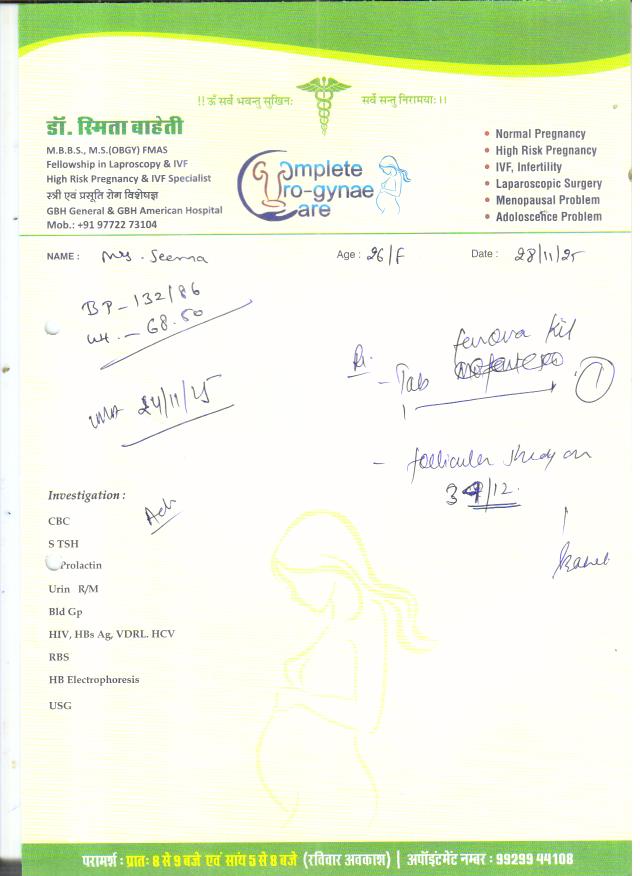 !! ॐ सर्वे भवन्तु सुखिनः सर्वे सन्तु निरामयाः !!
डॉ. स्मिता बाहेती
M.B.B.S., M.S.(OBGY) FMAS
Fellowship in Laproscopy & IVF
High Risk Pregnancy & IVF Specialist
स्त्री एवं प्रसूति रोग विशेषज्ञ
GBH General & GBH American Hospital
Mob.: +91 97722 73104
Complete
Uro-gynae
Care
• Normal Pregnancy
• High Risk Pregnancy
• IVF, Infertility
• Laparoscopic Surgery
• Menopausal Problem
• Adoloscence Problem
NAME : Mrs. Seema Age : 26/F Date : 28/11/25
BP - 132/86
wt. - 68.50
LMP 24/11/25
Rx.
- Tab fenova Kit 1
- follicular study on
/12.
Investigation :
Adv
CBC
S TSH
Prolactin
Urin R/M
Bld Gp
HIV, HBs Ag, VDRL. HCV
RBS
HB Electrophoresis
USG
परामर्श : प्रातः 8 से 9 बजे एवं सायं 5 से 8 बजे (रविवार अवकाश) | अपॉइंटमेंट नम्बर : 99299 44108